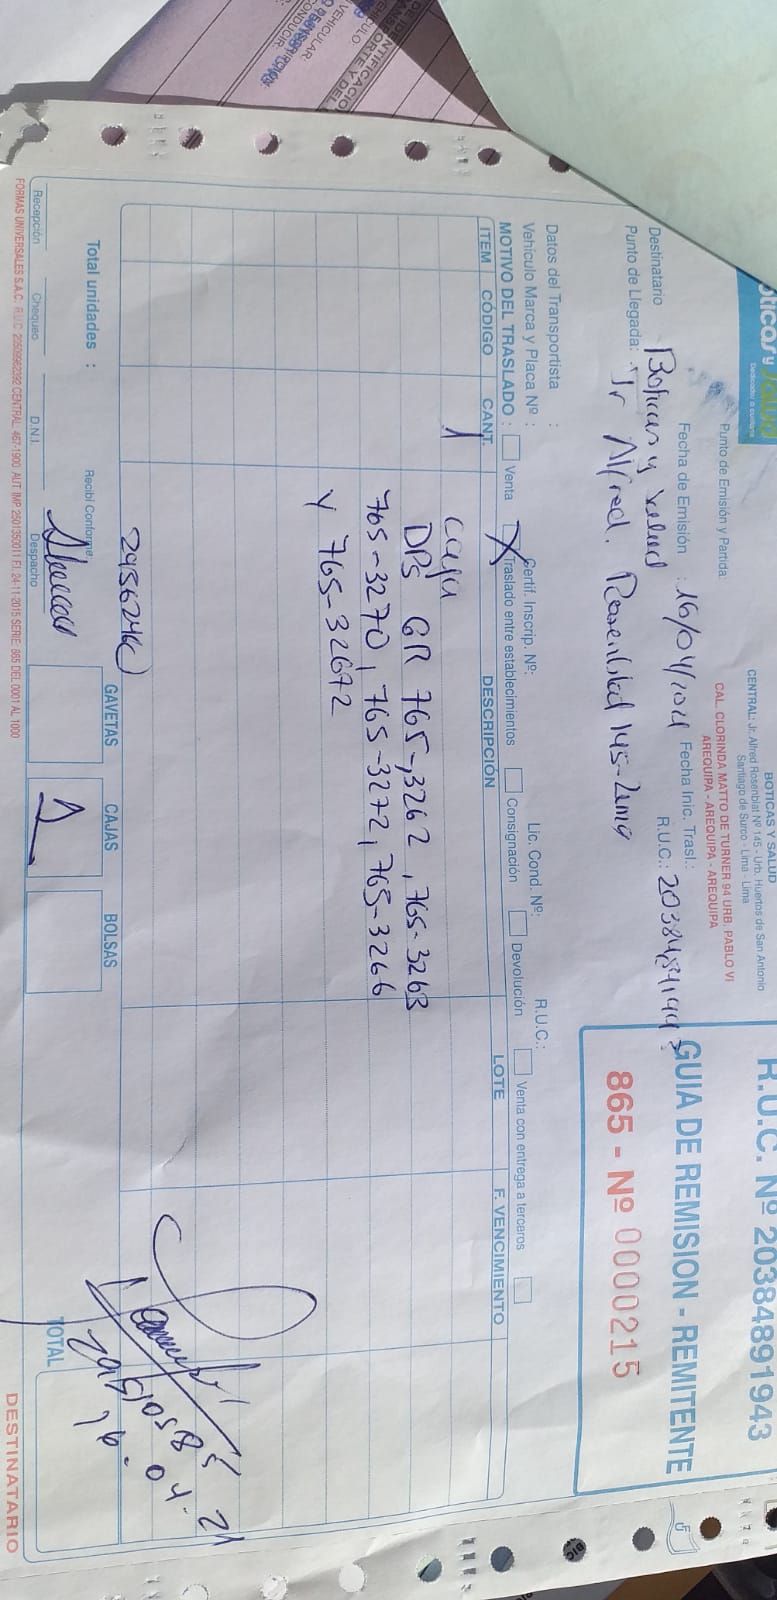 DE IDENTIFICACIÓN
VEHICULAR
Boticas y Salud
Dedicados a cuidarte
BOTICAS Y SALUD
CENTRAL: Jr. Alfred Rosenblat Nº 145 - Urb. Huertos de San Antonio
Santiago de Surco - Lima - Lima
R.U.C. Nº 20384891943
GUIA DE REMISION - REMITENTE
865 - Nº 0000215
Punto de Emisión y Partida:
CAL. CLORINDA MATTO DE TURNER 94 URB. PABLO VI
AREQUIPA - AREQUIPA - AREQUIPA
Fecha de Emisión : 16/04/2021 Fecha Inic. Trasl.:
Destinatario Boticas y Salud R.U.C.:
Punto de Llegada: Jr Alfred. Rosenblat 145-Lima
Datos del Transportista :
Vehículo Marca y Placa Nº : Certif. Inscrip. Nº: Lic. Cond. Nº: R.U.C.:
MOTIVO DEL TRASLADO : Venta X Traslado entre establecimientos Consignación Devolución Venta con entrega a terceros
ITEM CÓDIGO CANT. DESCRIPCIÓN LOTE F. VENCIMIENTO
1 caja
DPS GR 765-3262, 765-3263
765-3270, 765-3272, 765-3266
y 765-32672
Total unidades :
GAVETAS CAJAS BOLSAS
1
TOTAL
Recibí Conforme
Recepción Chequeo D.N.I. Despacho
FORMAS UNIVERSALES S.A.C. R.U.C. 20509982392 CENTRAL: 467-1900 AUT IMP 2501350011 F.I. 24-11-2015 SERIE: 865 DEL 0001 AL 1000
DESTINATARIO
29510585
16-04-21